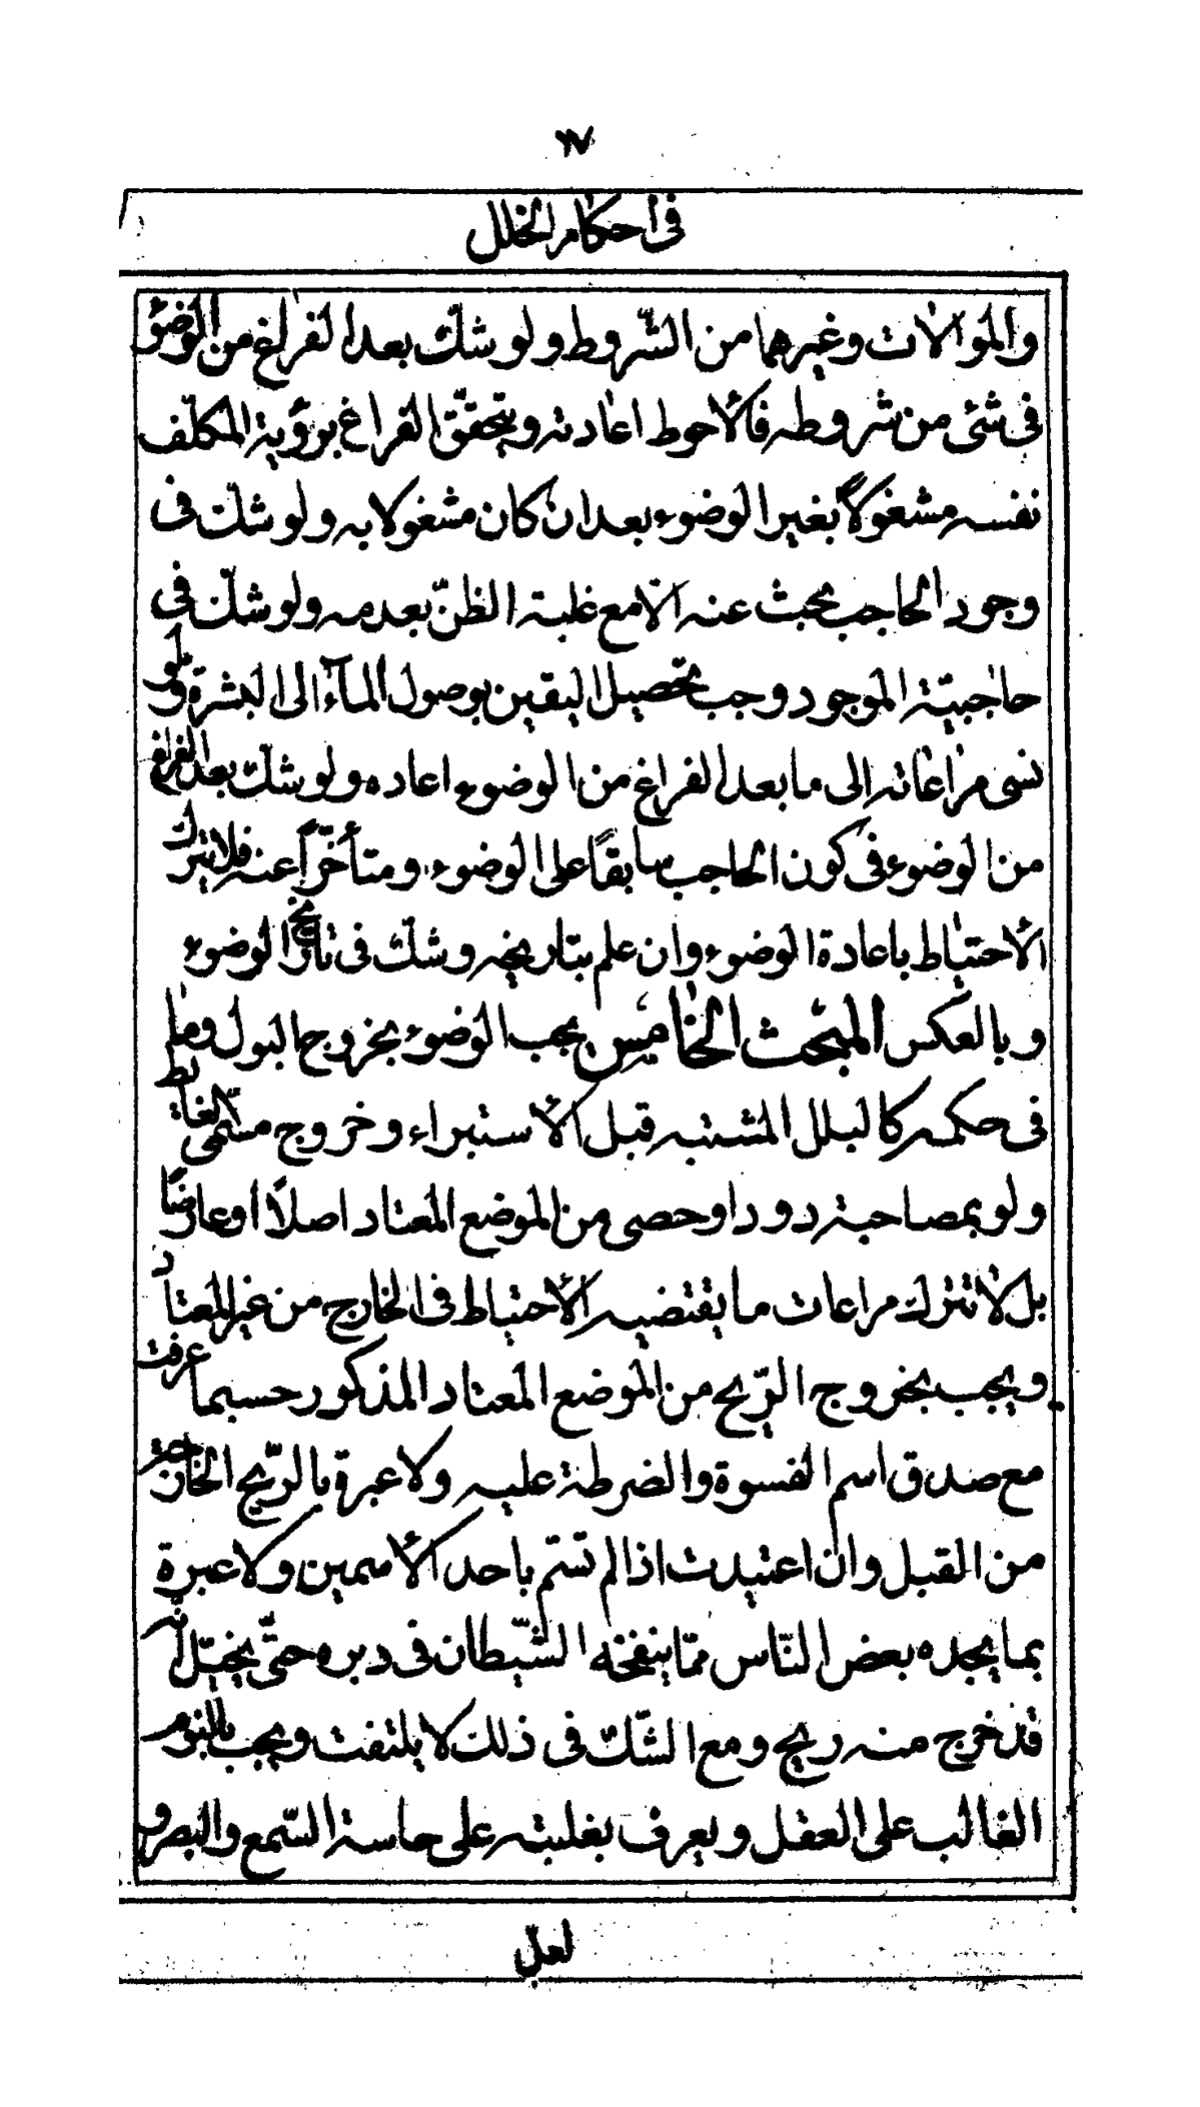 ٢٧
فى احكام الخلل
والموالات وغيرهما من الشّروط ولو شكّ بعد الفراغ من الوضوء
فى شئ من شروطه فالأحوط اعادته ويتحقّق الفراغ برؤية المكلّف
نفسه مشغولاً بغير الوضوء بعد ان كان مشغولا به ولو شكّ فى
وجود الحاجب بحث عنه الاّ مع غلبة الظنّ بعدمه ولو شكّ فى
حاجبيّة الموجود وجب تحصيل اليقين بوصول المآء الى البشرة ولو
نسى مراعاته الى ما بعد الفراغ من الوضوء اعاده ولو شكّ بعد الفراغ
من الوضوء فى كون الحاجب سابقاً على الوضوء ومتأخّراً عنه فلا يترك
الأحتياط باعادة الوضوء وان علم بتاريخه وشكّ فى تاريخ الوضوء
وبالعكس المبحث الخامس يجب الوضوء بخروج البول وما
فى حكمه كالبلل المشتبه قبل الأستبراء وخروج مسمّى الغائط
ولو بمصاحبة دود او حصى من الموضع المعتاد اصلاً او عارضاً
بل لا تترك مراعات ما يقتضيه الأحتياط فى الخارج من غير المعتاد
ويجب بخروج الرّيح من الموضع المعتاد المذكور حسبما عرفت
مع صدق اسم الفسوة والضرطة عليه ولا عبرة بالرّيح الخارجة
من القبل وان اعتيدت اذا لم تسّم باحد الأسمين ولا عبرة
بما يجده بعض النّاس ممّا ينفخه الشّيطان فى دبره حتّى يخيّل انّه
قد خرج منه ريح ومع الشّكّ فى ذلك لا يلتفت ويجب بالنوم
الغالب على العقل ويعرف بغلبته على حاسة السّمع والبصر و
لعلّ